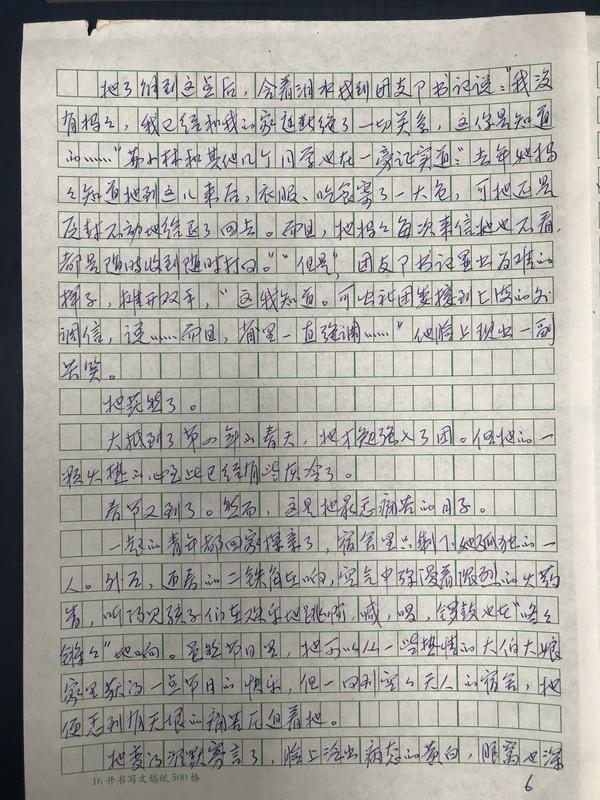 她了解到这点后，含着泪水找到团支部书记说：“我没
有妈妈，我已经和我的家庭断绝了一切关系，这你是知道
的……”苏小林和其他几个同学也在一旁证实道：“去年她妈
妈知道她到这儿来后，衣服、吃食寄了一大包，可她还是
原封不动地给退了回去。而且，她妈妈每次来信她也不看，
都是随时收到随时打回。”“但是”，团支部书记露出为难的
样子，摊开双手，“这我知道。可公社团委接到上海的外
调信，说……而且，省里一直强调……”他脸上现出一副
苦笑。
她茫然了。
大抵到了第四年的春天，她才勉强入了团。但她的一
颗火热的心至此已经有些灰冷了。
春节又到了。然而，这是她最感痛苦的日子。
一起的青年都回家探亲了，宿舍里只剩下她孤独的一
人。外面，两响的二铁角在响，空气中弥漫着浓烈的火药
香，听得见孩子们在欢乐地跳啊，喊，唱，锣鼓也在“咚咚
锵锵”地响。虽然节日里，她可以从一些热情的大伯大娘
家里获得一点节日的快乐，但一回到空空无人的宿舍，她
便感到有无限的痛苦压迫着她。
她变得沉默寡言了，脸上泛出病态的黄白，眼窝也深
16开书写文稿纸500格
6